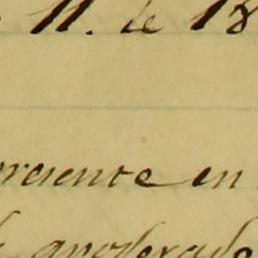 11. de 18
presente en
apoderado